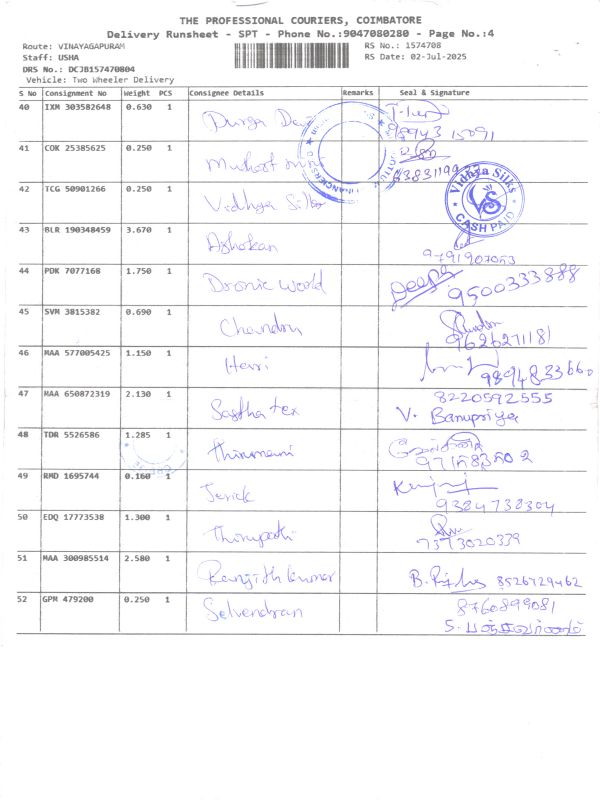 THE PROFESSIONAL COURIERS, COIMBATORE
Delivery Runsheet - SPT - Phone No.:9047080280 - Page No.:4
Route: VINAYAGAPURAM RS No.: 1574708
Staff: USHA RS Date: 02-Jul-2025
DRS No.: DCJB157470804
Vehicle: Two Wheeler Delivery
S No Consignment No Weight PCS Consignee Details Remarks Seal & Signature
40 IXM 303582648 0.630 1 Durga Devi
98943 15091
41 COK 25385625 0.250 1
42 TCG 50901266 0.250 1 Vidhya Silks
Vidhya Silks
VS
CASH PAID
43 BLR 190348459 3.670 1 Ashokan
9791907053
44 PDK 7077168 1.750 1 Dronic World Deepa
9500333888
45 SVM 3815382 0.690 1 Chandru
9626271181
46 MAA 577005425 1.150 1 Henri
9894833660
47 MAA 650872319 2.130 1 Sastha tex 8220592555
V. Banupriya
48 TDR 5526586 1.285 1 Thirumani
49 RMD 1695744 0.160 1 Jerick
9384738304
50 EDQ 17773538 1.300 1 Thirupathi
7373020339
51 MAA 300985514 2.580 1 Ranjith kumar 8526729462
52 GPM 479200 0.250 1 Selvendran 8760899081